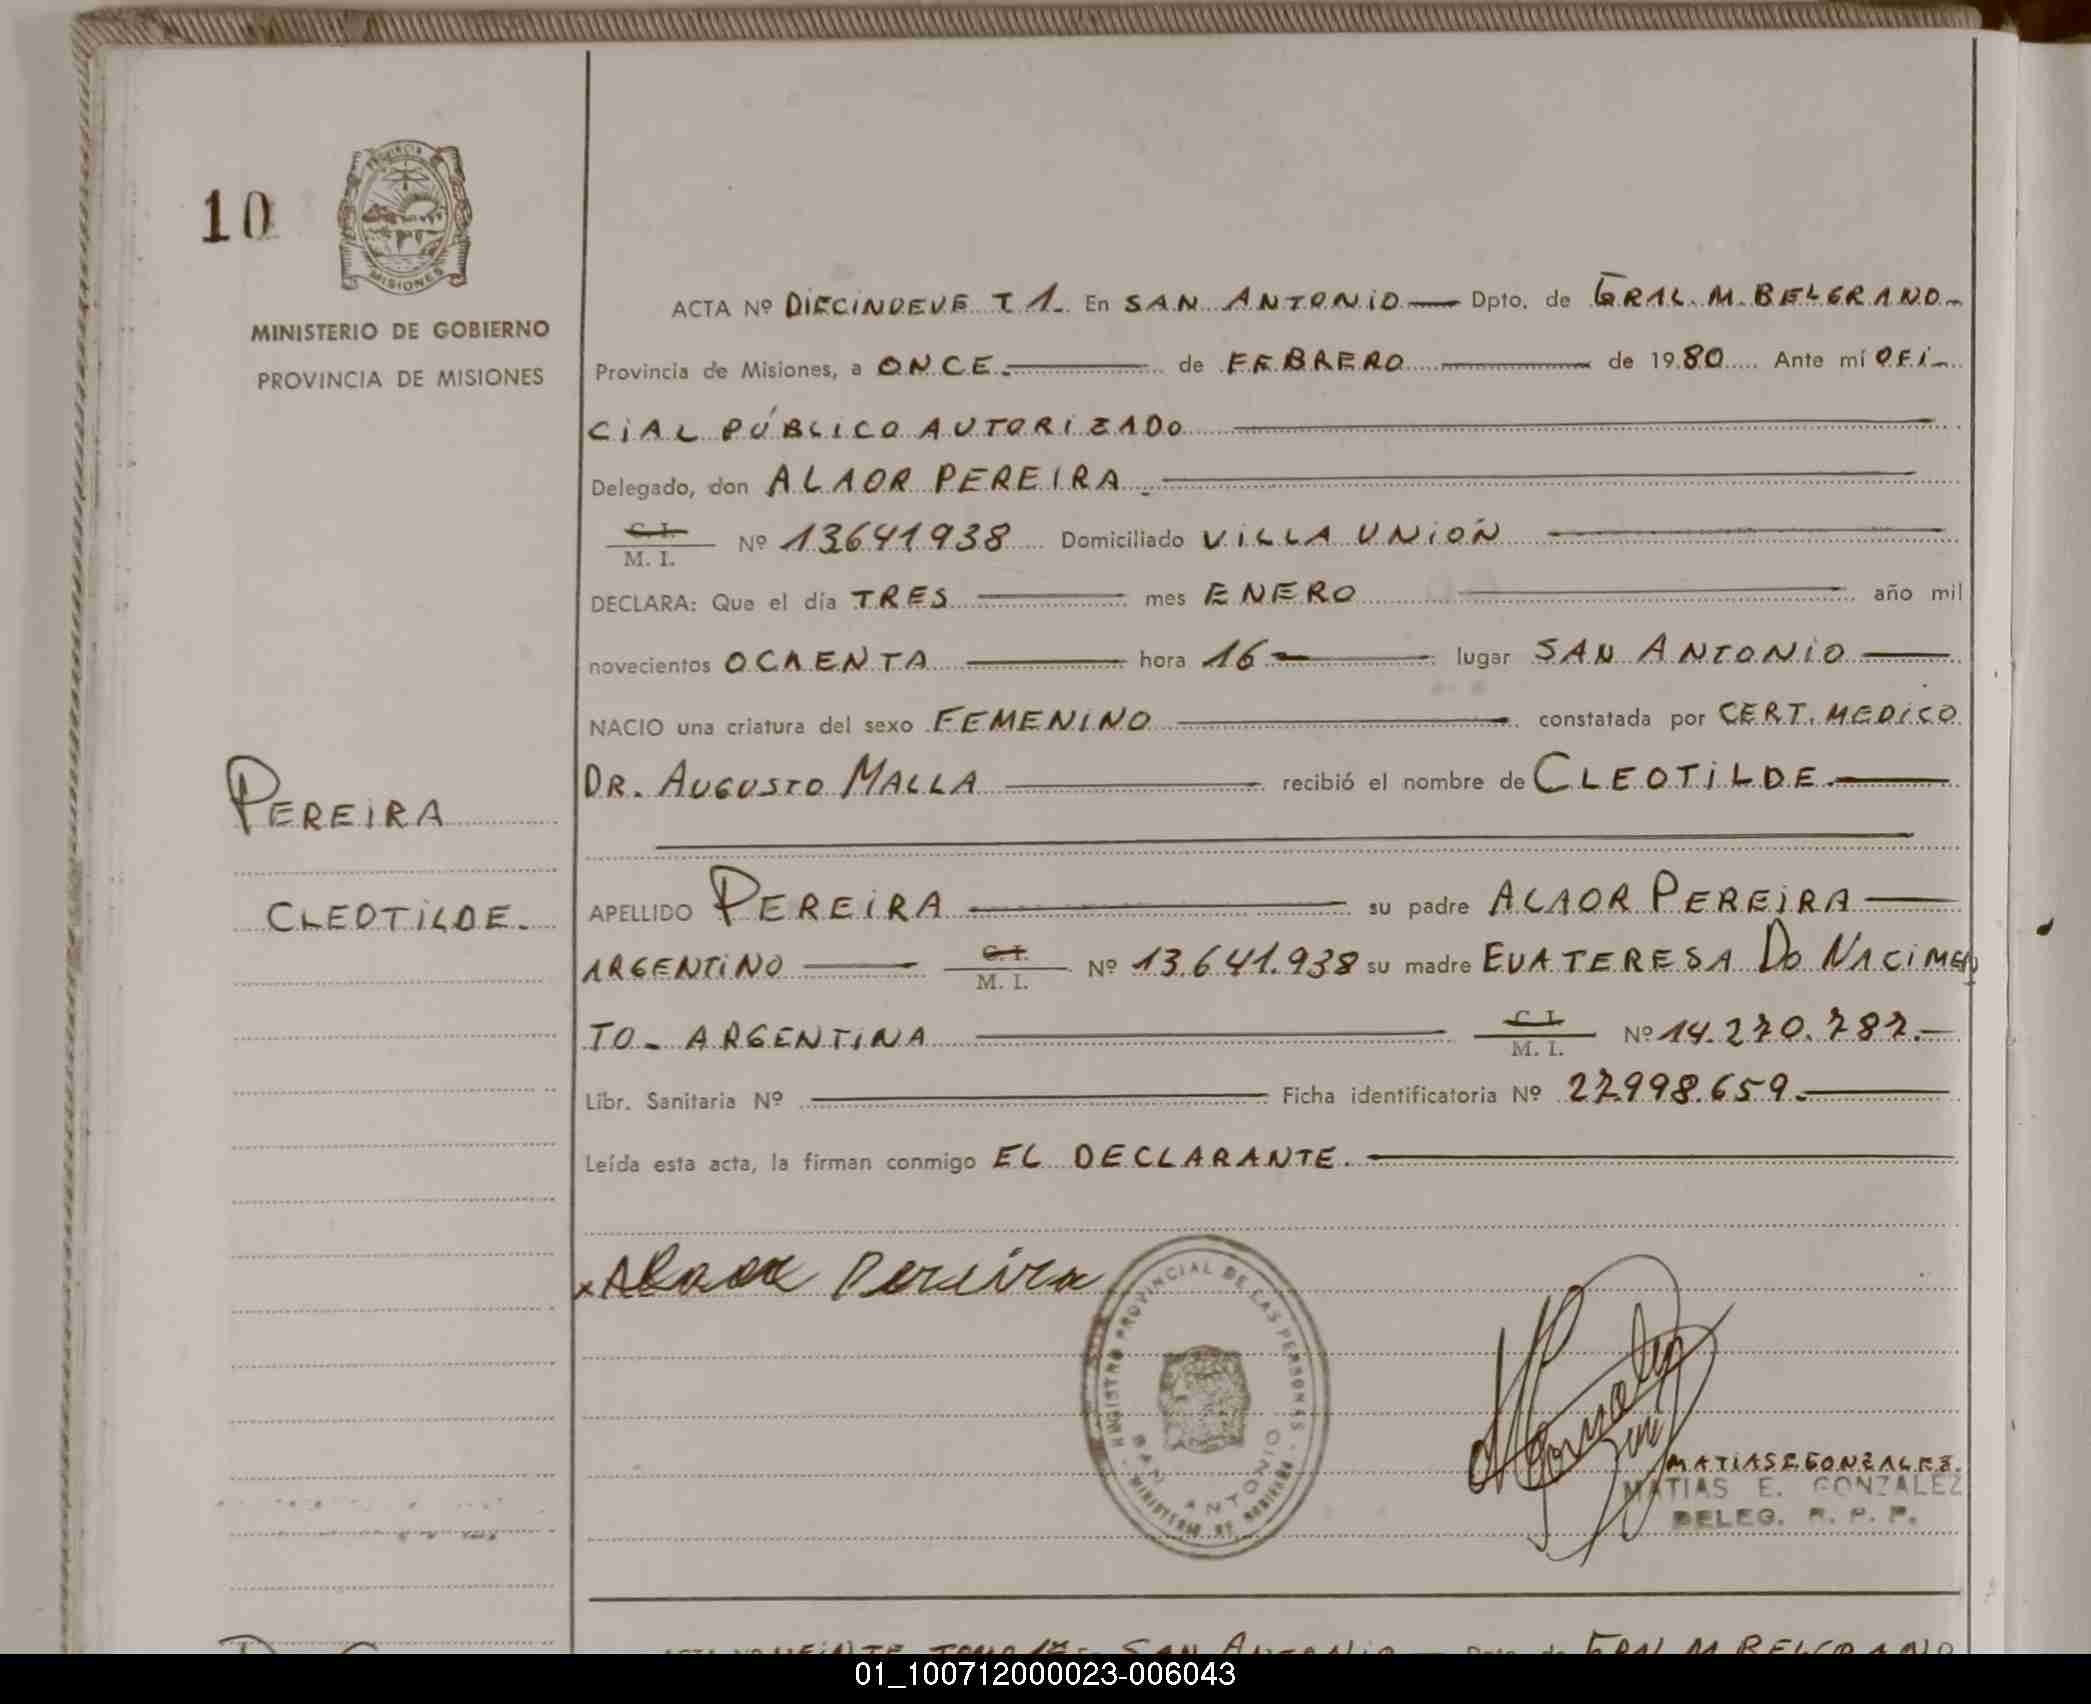 10
PROVINCIA DE
MISIONES
MINISTERIO DE GOBIERNO
PROVINCIA DE MISIONES
ACTA Nº DIECINUEVE T 1. En SAN ANTONIO Dpto. de GRAL. M. BELGRANO
Provincia de Misiones, a ONCE. de FEBRERO de 1980 Ante mí OFI-
CIAL PÚBLICO AUTORIZADO
Delegado, don ALAOR PEREIRA.
C. I.
M. I. Nº 13641938 Domiciliado VILLA UNIÓN
DECLARA: Que el día TRES mes ENERO año mil
novecientos OCHENTA hora 16 lugar SAN ANTONIO
NACIO una criatura del sexo FEMENINO constatada por CERT. MEDICO
DR. AUGUSTO MALLA recibió el nombre de CLEOTILDE.
PEREIRA
CLEOTILDE.
APELLIDO PEREIRA su padre ALAOR PEREIRA
ARGENTINO C. I. M. I. Nº 13.641.938 su madre EVA TERESA DO NACIMEN
TO - ARGENTINA C. I. M. I. Nº 14.270.787.-
Libr. Sanitaria Nº Ficha identificatoria Nº 27.998.659.
Leída esta acta, la firman conmigo EL DECLARANTE.
x Alaor Pereira
REGISTRO PROVINCIAL DE LAS PERSONAS
SAN ANTONIO
MINISTERIO DE GOBIERNO
MATIAS E. GONZALEZ.
MATIAS E. GONZALEZ
DELEG. R. P. P.
01_100712000023-006043